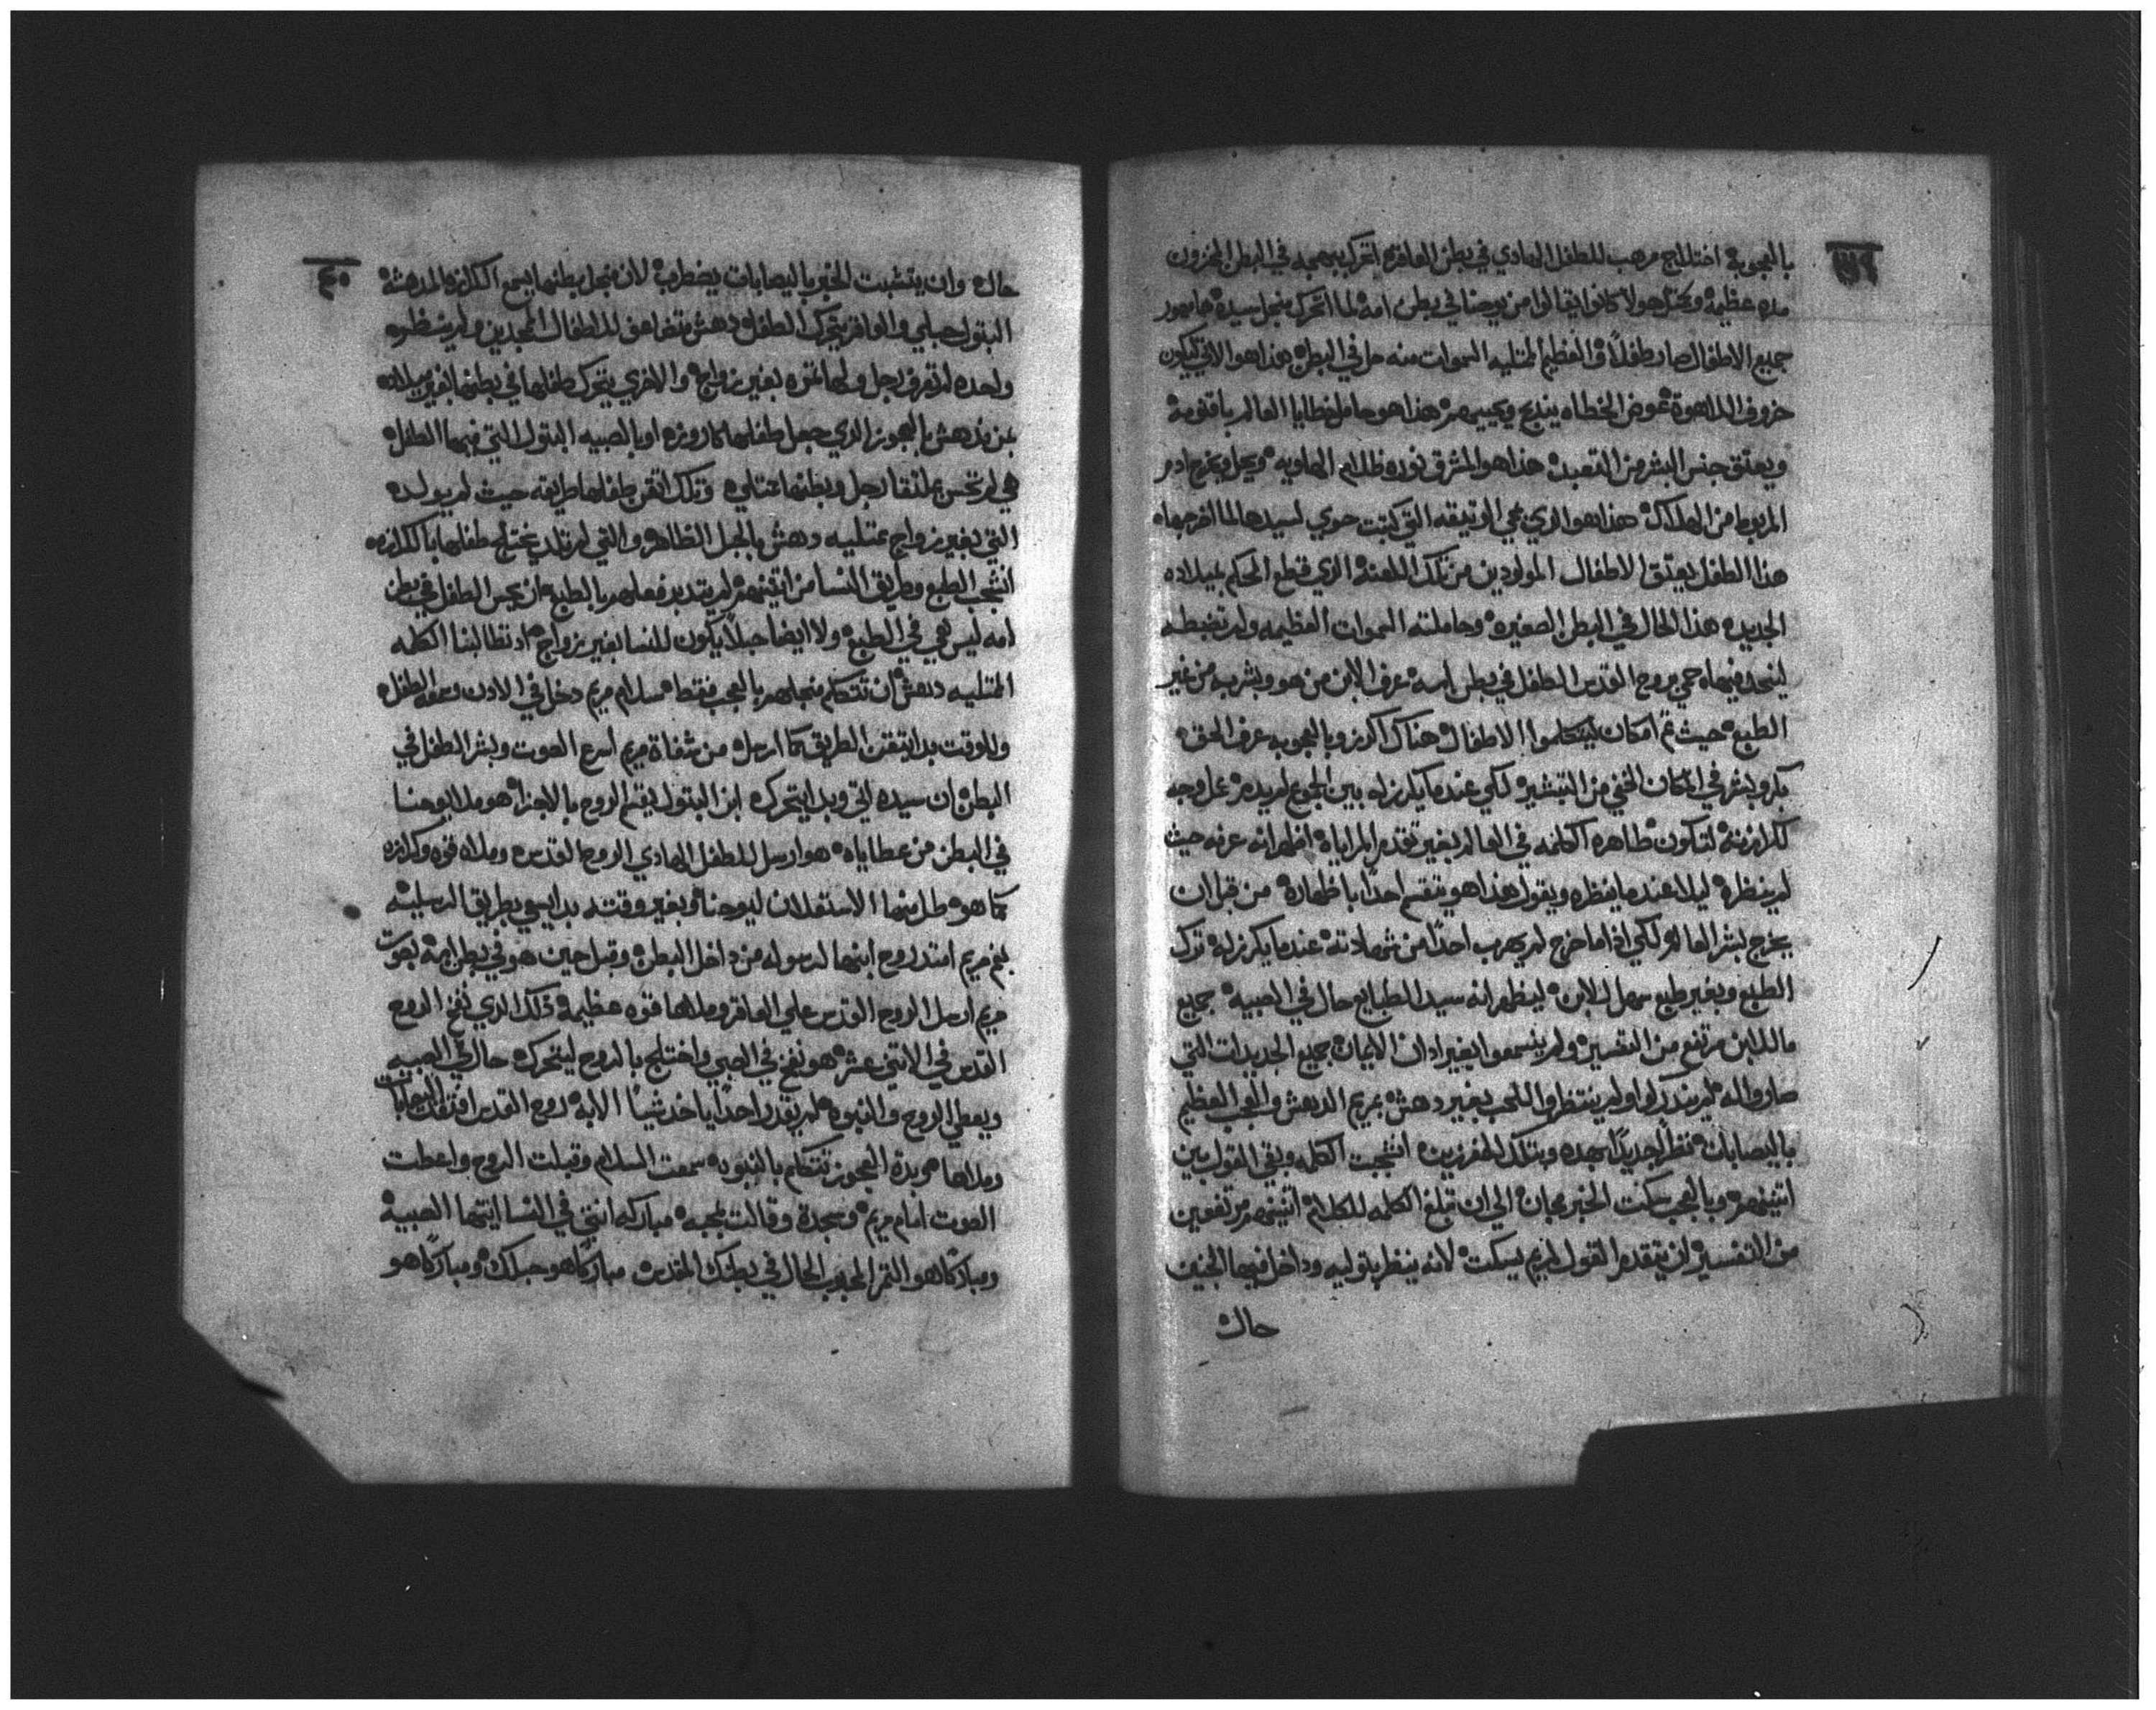 بالعجوبه اختلاج مرهب للطفل الهادي في بطن العاقر اتحرك ببهجه في البطن المخزون
مده عظيمه هولا كانوا يقالوا من يوحنا في بطن امه لما اتحرك منجل سيده
جميع الاطفال صار طفلاً والعظيم المتليه السموات منه حل في البطن هذا هو الاتي ليكون
خروف اللاهوة عوض الخطاه يندبح ويحييهم هذا هو حامل خطايا العالم باقنومه
ويعتق جنس البشر من التعبد هذا هو المشرق نوره ظلام الهاويه ويحل ويخرج ادم
المربوط من الهلاك هذا هو الدي محي الوتيقه التي كتبت حوي لسيدها لما اخرجها
هذا الطفل يعتق الاطفال المولودين من تلك اللعنه الدي قطع الحكم بميلاده
الجديد هذا الحال في البطن الصغيره وحاملته السموات العظيمه ولم تضبطه
روح القدس الطفل في بطن امه عرف الابن من هو وبشر به من غير
الطبع حيث تم امكان ليتكلموا الاطفال هناك اكرز وبالعجوبه عرف الحق
بكر وبشر في المكان الخفي من التبشير لكي عندما يكرز له بين الجموع
كرازته لتكون طاهره الكلمه في العالم بغير تقدم المراياة اظهر انه عرفه حيث
لم ينظره ليلا عندما ينظره ويقول هذا هو يتقسم احداً باظهاره من قبل ان
يخرج بشر العالم لكي اذا ما خرج لم يهرب احداً من شهادته عندما يكرز له ترك
الطبع وبغير طبع سهل للابن ليظهر انه سيد الطبايع حال في الصبيه جميع
ما للابن مرتفع من التفسير ولم ينسمعوا بغير ادان الايمان جميع الجديدات التي
صاروا له لم يندركوا ولم ينتظروا اللحب بغير دهش مريم الدهش والعجب العظيم
باليصابات نظر جديداً وبتلك المفرزين انتجبت الكلمه وبقي القول بين
اتنينهم وبالعجب سكت الخبر الي ان تبلغ الكلمه للكلام اتنينهم مرتفعين
من التفسير ان يتقدم القول لمريم يسكت لانه ينظر بتوليه وداخل فيها الجنين
حال
٤٠
حال وان يتتبت الخبر باليصابات يضطرب لان منجل بطنها يسمع الكرازه المدهشه
البتول حبلي والعاقر يتحرك الطفل دهش للاطفال المجدين ولم ينظره
واحده لم تعرف رجل ولها تمره بغير زواج والاخري يتحرك طفلها في بطنها بغير ميلاده
بمن يندهش بالعجوز الدي جعل طفلها كاروزه او بالصبيه البتول التي فيها الطفل
هي لم تحس بملتقا رجل وبطنها تمتلي وتلك اتقن طفلها طريقه حيث لم يولد
التي بغير زواج تمتليه دهش بالحبل الظاهر والتي لم تلد يختلج طفلها بالكرازه
انتجب الطبع وطريق النسا من اتنينهم لم يتدبر فعلهم بالطبع ان يحس الطفل في بطن
امه ليس هي في الطبع ولا ايضا حبلاً يكون للنسا بغير زواج اد تطالبنا الكلمه
المتليه دهش ان تتكلم منجلهم بالعجب فقط سلام مريم دخل في الادن وسمعه الطفل
وللوقت بدا يتقن الطريق كما ارسل من شفاة مريم اسرع الصوت وبشر الطفل في
البطن ان سيده اتي وبدا يتحرك ابن البتول يقسم الروح بالاجزا هو ملا يوحنا
في البطن من عطاياه هو ارسل للطفل الهادي الروح القدس وملاه قوه وكرازه
كما هو طل منها الاستعلان ليوحنا وبغير وقته بدا يسعي بطريق الرسليه
بفم مريم امتد روح ابنها لرسوله من داخل البطن وقبل حين هو في بطن امه بصوت
مريم ارسل الروح القدس علي العاقر وملاها قوه عظيمه دلك الدي نفخ الروح
القدس في الاتني عشر هو نفخ في الصبي واختلج بالروح ليتحرك حال في الصبيه
ويعطي الروح والنبوه لم يقدر احداً ياخد شيا الا به روح القدس اليصابات
وملاها وبدة العجوز تتكلم بالنبوه سمعت السلام وقبلت الروح واعطت
الصوت امام مريم وسجدة وقالت بمحبه مباركه انتي في النسا ايتها الصبيه
ومباركا هو التمر المحبوب الحال في بطنك المقدس مباركاً هو حبلك ومباركاً هو